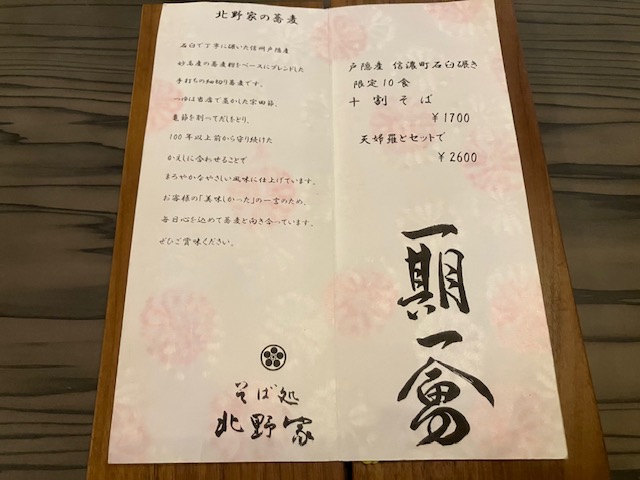 北野家の蕎麦
石臼で丁寧に碾いた信州戸隠産
妙高産の蕎麦粉をベースにブレンドした
手打ちの細切り蕎麦です。
つゆは当店で蒸かした宗田節、
亀節を割ってだしをとり、
100年以上前から守り続けた
かえしに合わせることで
まろやかなやさしい風味に仕上げています。
お客様の「美味しかった」の一言のため、
毎日心を込めて蕎麦と向き合っています。
ぜひご賞味ください。
そば処
北野家
戸隠産 信濃町石臼碾き
限定10食
十割そば
¥1700
天婦羅とセットで
¥2600
一期一會